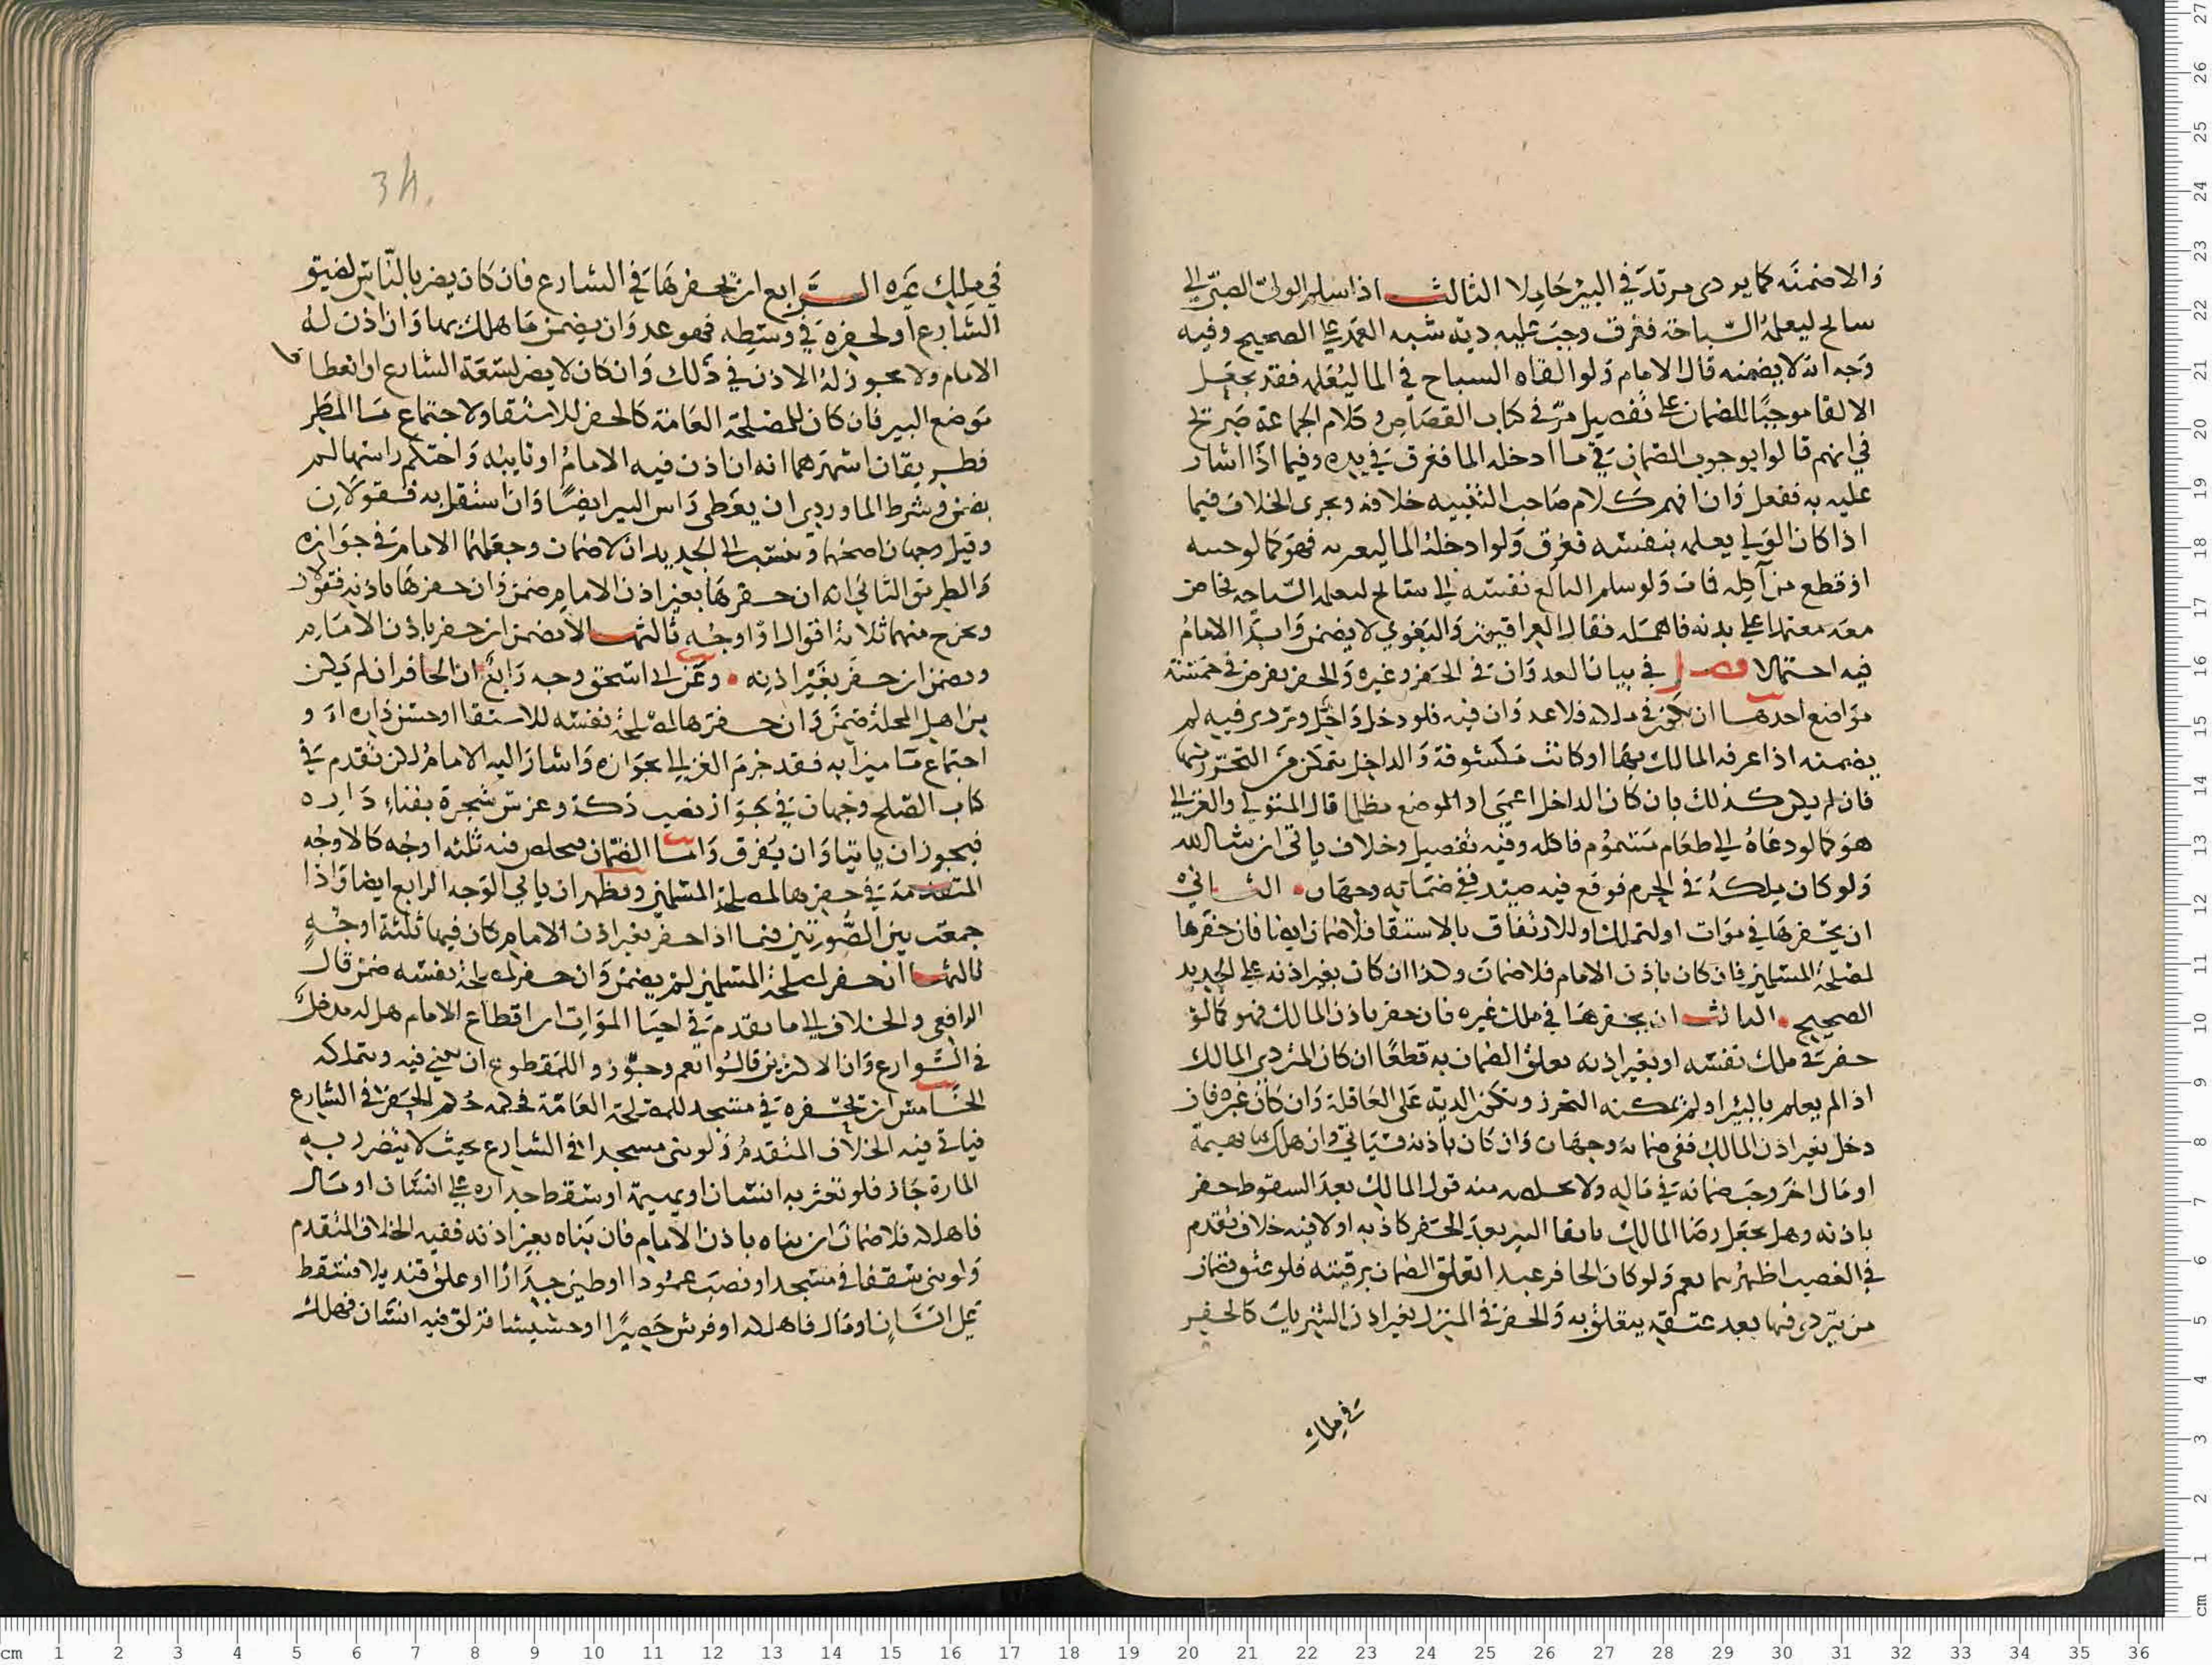 والا ضمنه كما يودى مرتد في البير حاد لا الثالث اذا سلم الولى الصبى الى
سابح ليعلمه السباحة فغرق وجبت عليه دية شبه العمد على الصحيح وفيه
وجه انه لا يضمنه قال الامام ولو القاه السباح في الما ليعلمه فقد يجعل
الالقا موجبا للضمان على تفصيل مر في كتاب القصاص وكلام الجماعة صريح
في انهم قالوا بوجوب الضمان في ما ادخله الما فغرق في يده وفيما اذا اشار
عليه به ففعل وان افهم كلام صاحب التنبيه خلافه ويجرى الخلاف فيما
اذا كان الولي يعلمه بنفسه فغرق ولو ادخله الما ليعبر به فهو كما لو حسه
او قطع من آكله فمات ولو سلم البالغ نفسه الى سابح ليعلمه السباحه فخاض
معه معتمدا على يده فاهمله فقال العراقيون والبغوي لا يضمن وابدا الامام
فيه احتمالا فصل في بيان العدوان في الحفر وغيره والحفر يفرض في خمسة
مواضع احدها ان يكون في ملكه فلا عدوان فيه فلو دخل داخل وتردى فيه لم
يضمنه اذا عرفه المالك بها او كانت مكشوفة والداخل يتمكن من التحرز منها
فان لم يكن كذلك بان كان الداخل اعمى او الموضع مظلما قال المتولي والغزالي
هو كما لو دعاه الى طعام مسموم فاكله وفيه تفصيل وخلاف ياتى ان شا الله
ولو كان ملكه في الحرم فوقع فيه صيد ففي ضمانه وجهان الثانى
ان يحفرها في موات اولتملك او للارتفاق بالاستقا فلا ضمان ايضا فان حفرها
لمصلحة المسلمين فان كان باذن الامام فلا ضمان وكذا ان كان بغير اذنه على الجديد
الصحيح الثالث ان يحفرها في ملك غيره فان حفر باذن المالك فهو كما لو
حفر في ملك نفسه او بغير اذنه تعلق الضمان به قطعا ان كان المتردى المالك
اذا لم يعلم بالبير او لم يمكنه التحرز وتكون الدية على العاقلة وان كان غيره فان
دخل بغير اذن المالك ففي ضمانه وجهان وان كان باذنه فسياتى وان هلك بها بهيمة
او مال اخر وجب ضمانه في ماله ولا يخلصه منه قول المالك بعد السقوط حفر
باذنه وهل يجعل رضا المالك بابقا البير بعد الحفر كاذنه او لا فيه خلاف تقدم
في الغصب اظهرهما نعم ولو كان الحافر عبدا تعلق الضمان برقبته فلو عتق فضمان
من يتردى فيها بعد عتقه يتعلق به والحفر في المنزل بغير اذن الشريك كالحفر
في ملك
34
في ملك غيره الرابع ان يحفرها في الشارع فان كان يضر بالناس لضيق
الشارع او لحفره في وسطه فهو عدوان يضمن ما هلك بها وان اذن له
الامام ولا يجوز له الاذن في ذلك وان كان لا يضر لسعة الشارع او انعطاف
موضع البير فان كان للمصلحة العامة كالحفر للاستقا ولاجتماع ما المطر
فطريقان اشهرهما انه ان اذن فيه الامام او نايبه واحكم راسها لم
يضمن وشرط الماوردي ان يغطى راس البير ايضا وان استقل به فقولان
وقيل وجهان اصحهما وينسب الى الجديد ان لا ضمان وجعلهما الامام في جوازه
والطريق الثاني انه ان حفرها بغير اذن الامام ضمن وان حفرها باذنه فقولان
ويخرج منهما ثلاثة اقوال او اوجه ثالثها لا يضمن ان حفر باذن الامام
ويضمن ان حفر بغير اذنه وعن ابى اسحق وجه رابع ان الحافر ان لم يكن
من اهل المحلة ضمن وان حفرها لمصلحة نفسه للاستقا او حش داره او
اجتماع ما ميزابه فقد جزم الغزالي بجوازه واشار اليه الامام لكن تقدم في
كتاب الصلح وجهان في جواز نصب دكة وغرس شجرة بفناء داره
فيجوز ان ياتيا وان يفرق واما الضمان فيخلص منه ثلثه اوجه كالاوجه
المتقدمة في حفرها لمصلحة المسلمين ويظهر ان ياتى الوجه الرابع ايضا واذا
جمعت بين الصورتين فيما اذا حفر بغير اذن الامام كان فيها ثلثة اوجه
ثالثها ان حفر لمصلحة المسلمين لم يضمن وان حفر لمصلحة نفسه ضمن قال
الرافعي والخلاف الى ما تقدم في احيا الموات ان اقطاع الامام هل له مدخل
في الشوارع وان الاكثرين قالوا نعم وجوزوا للمقطوع ان يبني فيه ويتملكه
الخامس ان تحفره في مسجد للمصلحة العامة فحكمه حكم الحفر في الشارع
فياتى فيه الخلاف المتقدم ولو بنى مسجدا في الشارع بحيث لا يتضرر به
المارة جاز فلو تعثر به انسان او بهيمة او سقط جداره على انسان او مال
فاهلكه فلا ضمان ان بناه باذن الامام فان بناه بغير اذنه ففيه الخلاف المتقدم
ولو بنى سقفا في مسجد او نصب عمودا او طين جدارا او علق قنديلا فسقط
على انسان او مال فاهلكه او فرش حصيرا او حشيشا فزلق فيه انسان فهلك